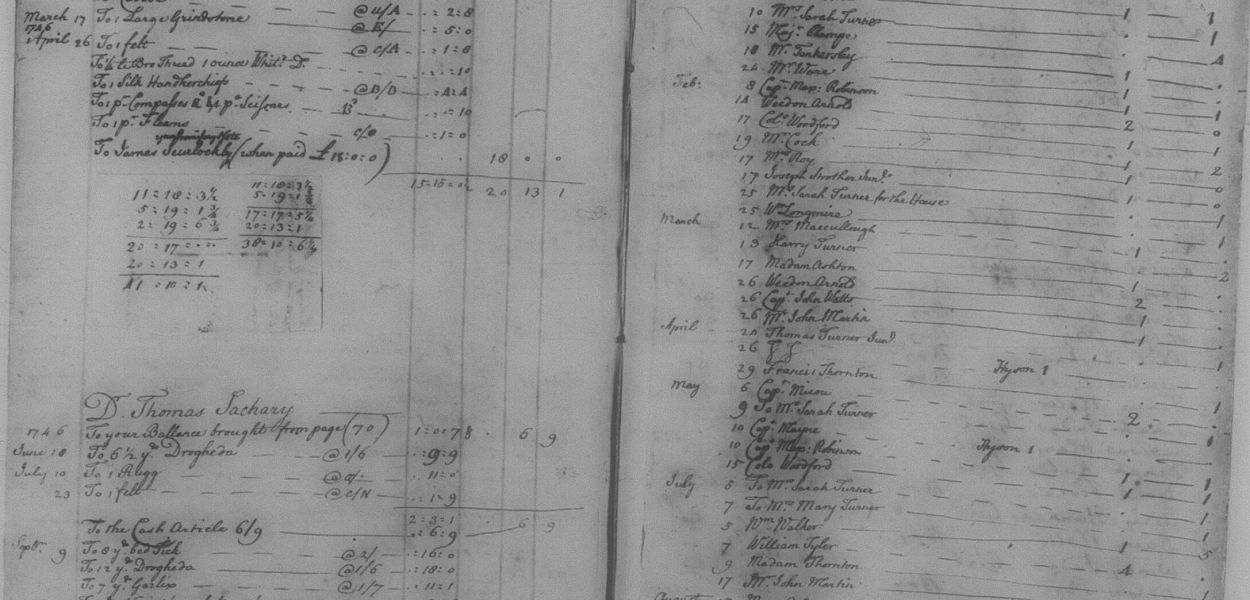 March 17 To 1 Large Grindstone @ u/A .. : 2 : 8
1746 @ E/ .. : 5 : 0
April 26 To 1 felt @ c/A .. : 1 : 8
To ½ lb Bro Thread 1 ounce Whitd Do .. : .. : 10
To 1 Silk Handkerchief @ B/B .. : 4 : 4
To 1 pr Compasses & 1 pr Scissars .. : .. : 10
To 1 pr Fleams c/o .. : 1 : 0
To James Scurlock by (when paid £ 18 : 0 : 0) 18 0 0
15 : 15 : 0½ 20 13 1
11 : 18 : 3½
5 : 19 : 1¾
2 : 19 : 6¾
20 : 17 : ..
20 : 13 : 1
41 : 10 : 1
11 : 18 : 3½
5 : 19 : 1¾
17 : 17 : 5¼
20 : 13 : 1
38 : 10 : 6¼
Dr. Thomas Jachary
1746 To your Ballance brought from page (70) 1 : 0 : 7½ 6 9
June 18 To 6½ yds Drogheda @ 1/6 .. : 9 : 9
July 10 To 1 Rugg .. : 11 : 0
23 To 1 felt @ c/N .. : 1 : 9
2 : 3 : 1 6 9
To the Cash Article 6/9 .. : 6 : 9
Septr. 9 To 8 yds bed Tick @ 2/ .. : 16 : 0
To 12 yds Drogheda @ 1/6 .. : 18 : 0
To 7 yds Garlix @ 1/7 .. : 11 : 1
10 Mrs Sarah Turner 1 1
15 Majr Champe 1
18 Mr Tankersley 4
24 Mr Ware 1
Feb: 8 Capt Max: Robinson 1
14 Weedon Arnold 1
17 Colo Woodford 2
19 Mr Cock 1
17 Mrs Roy
17 Joseph Strother Junr. 1
25 Mrs Sarah Turner for the House
March 25 Wm Longmire 1
12 Mrs Maccullough
13 Harry Turner 1
17 Madam Ashton
26 Weedon Arnold 1
26 Capt John Watts 2
26 Mr John Martin 1
April 24 Thomas Turner Junr.
26
29 Francis Thornton Hyson 1
May 6 Capt Micou
9 To Mrs Sarah Turner
10 Capt Mayne 2
10 Capt Max: Robinson Hyson 1
15 Colo Woodford
July 5 To Mrs Sarah Turner
7 To Mrs Mary Turner
5 Wm Walker
7 William Tyler 1
9 Madam Thornton 4
17 Mr John Martin
August